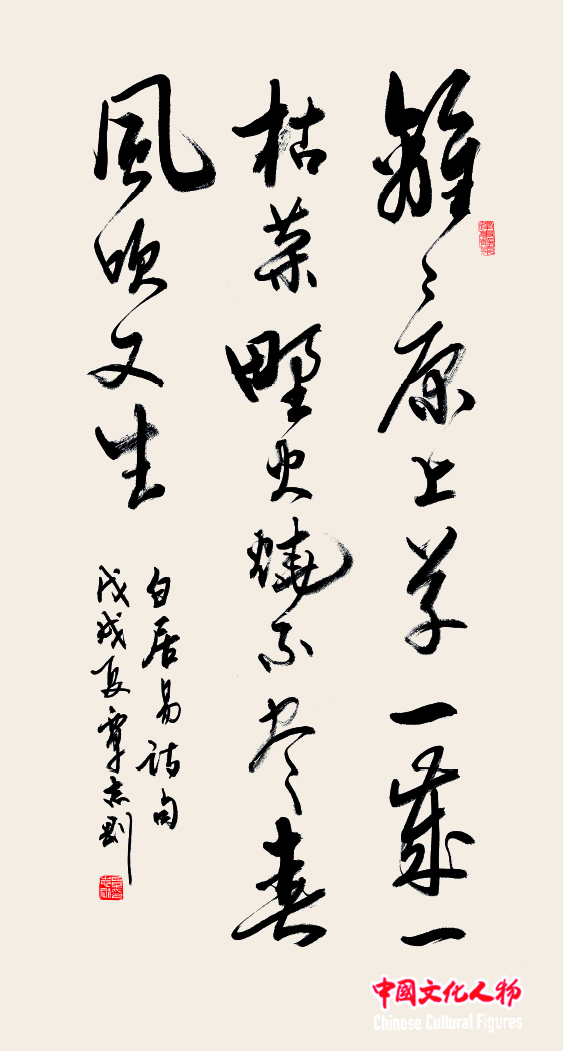 離々原上草一歲一
枯榮野火燒不尽春
風吹又生
白居易詩句
戊戌夏覃志剛
中國文化人物
Chinese Cultural Figures